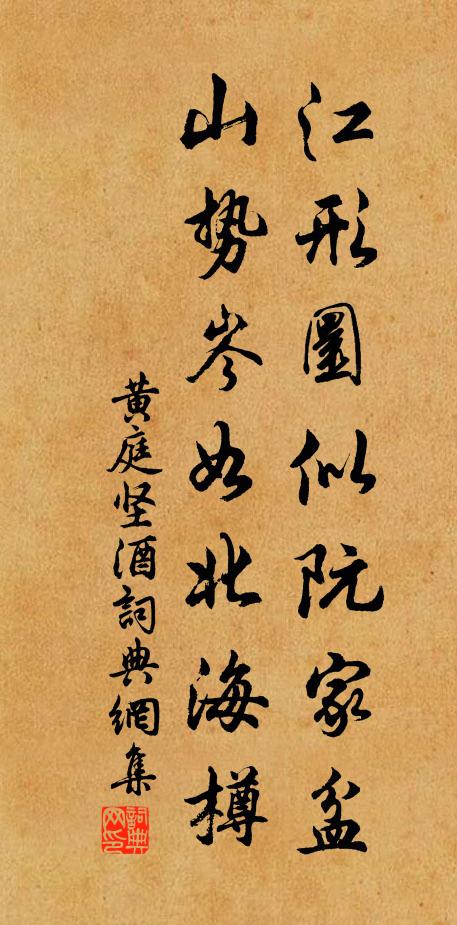 江形圍似阮家盆
山勢岑如北海樽
黄庭坚酒詞典網集
詞典網印